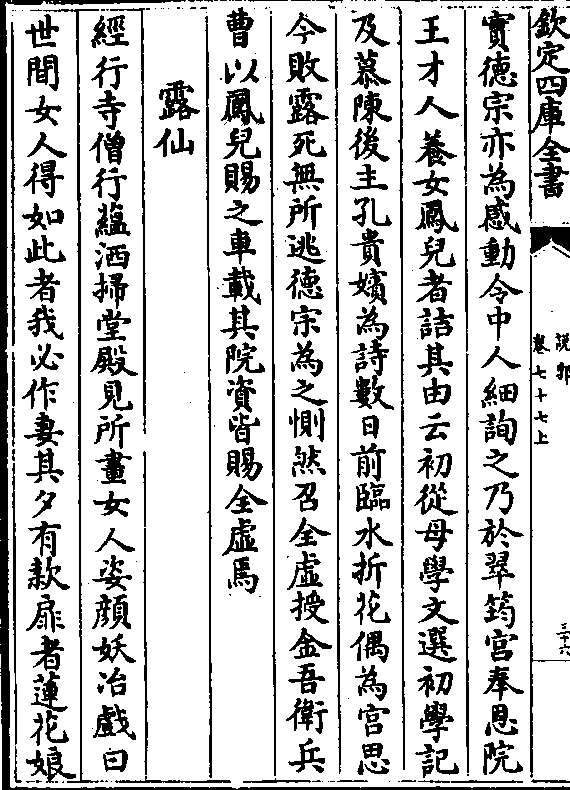 欽定四庫全書
説郛
卷七十七上
三十六
實德宗亦為感動令中人細詢之乃於翠筠宮奉恩院
王才人養女鳳兒者詰其由云初從母學文選初學記
及慕陳後主孔貴嬪為詩數日前臨水折花偶為宮思
今敗露死無所逃德宗為之惻然召全虛授金吾衛兵
曹以鳳兒賜之車載其院資皆賜全虛焉
露仙
經行寺僧行藴洒掃堂殿見所畫女人姿顔妖冶戲曰
世間女人得如此者我必作妻其夕有款扉者蓮花娘